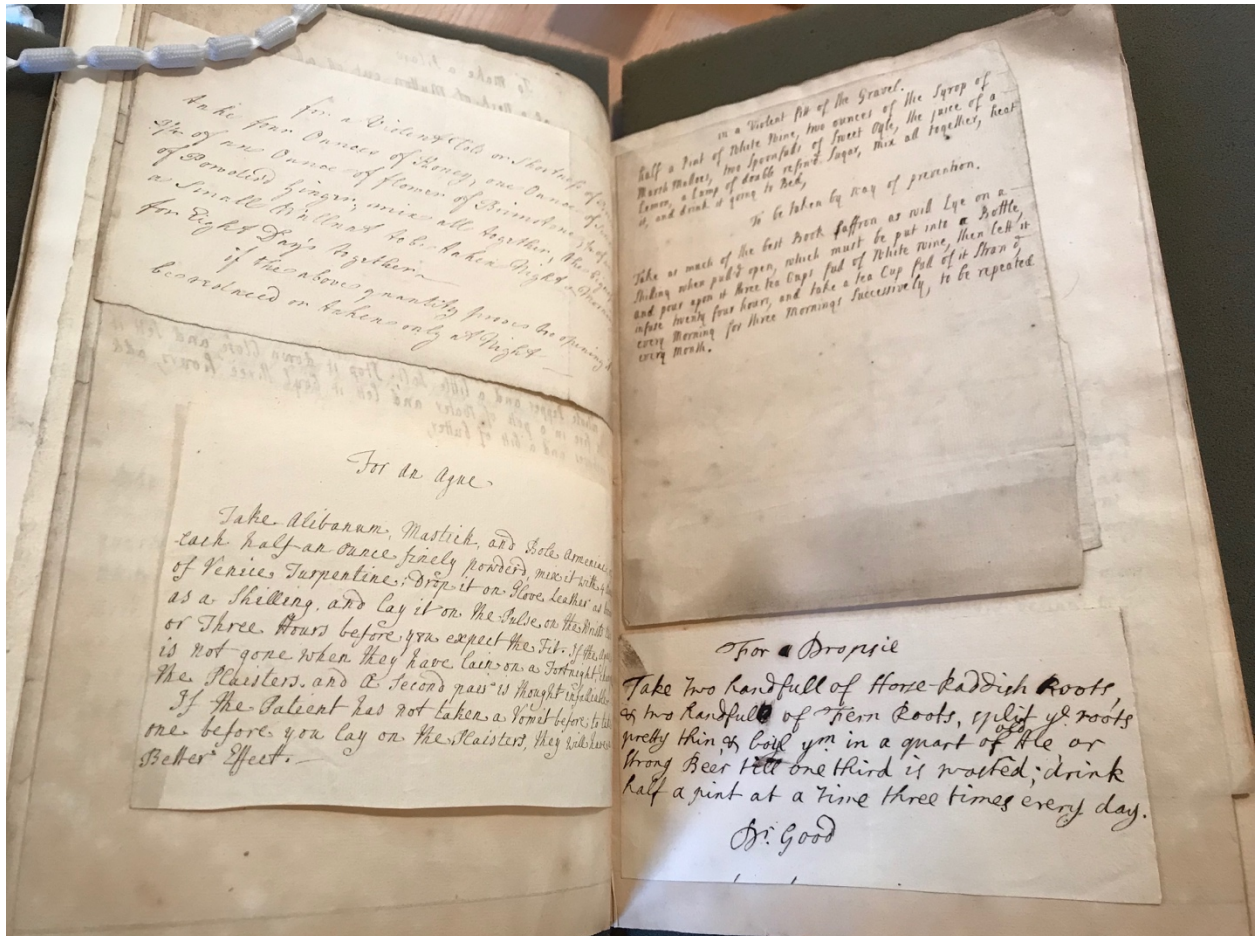 for a Violent Cold or Shortness of
Take four Ounces of Honey, one Ounce of
of an Ounce of flower of Brimstone,
of Powder'd Ginger, mix all together, the
a Small Wallnut to be taken Night &
for Eight Days together
if the above quantity proves too opening
be reduced or taken only at Night
For an Ague
Take Alibanum, Mastick, and Bole Armeniac
each half an ounce finely powderd, mix it with
of Venice Turpentine; Drop it on Glove Leather as
as a Shilling, and lay it on the Pulse on the Wrists
or Three Hours before you expect the Fit. If the
is not gone when they have lain on a Fortnight
the Plaisters, and a Second pair is thought infallible
If the Patient has not taken a Vomit before; to
one before you lay on the Plaisters, they will have
Better Effect.
in a Violent Fitt of the Gravel.
half a Pint of White Wine, two ounces of the Syrop of
Marsh Malows, two Spoonfuls of Sweet Oyle, the juice of a
Lemon, a Lump of double refin'd Sugar, Mix all together, heat
it, and drink it going to Bed,
To be taken by way of prevention.
Take as much of the best Book Saffron as will Lye on a
Shilling when pull'd open, which must be put into a Bottle,
and pour upon it three tea Cups full of White wine, then lett it
infuse twenty four hours, and take a tea Cup full of it Strain'd
every Morning for three Mornings Successively, to be repeated
every Month.
For a Dropsie
Take two handfull of Horse-Raddish Roots,
& two handfull of Fiern Roots, split ye roots
pretty thin, & boyl ym in a quart of old Ale or
Strong Beer till one third is wasted; drink
half a pint at a time three times every day.
Dr. Good